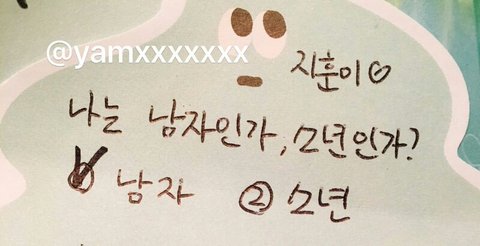 @yamxxxxxxx
지훈이♡
나는 남자인가, 소년인가?
① 남자 ② 소년